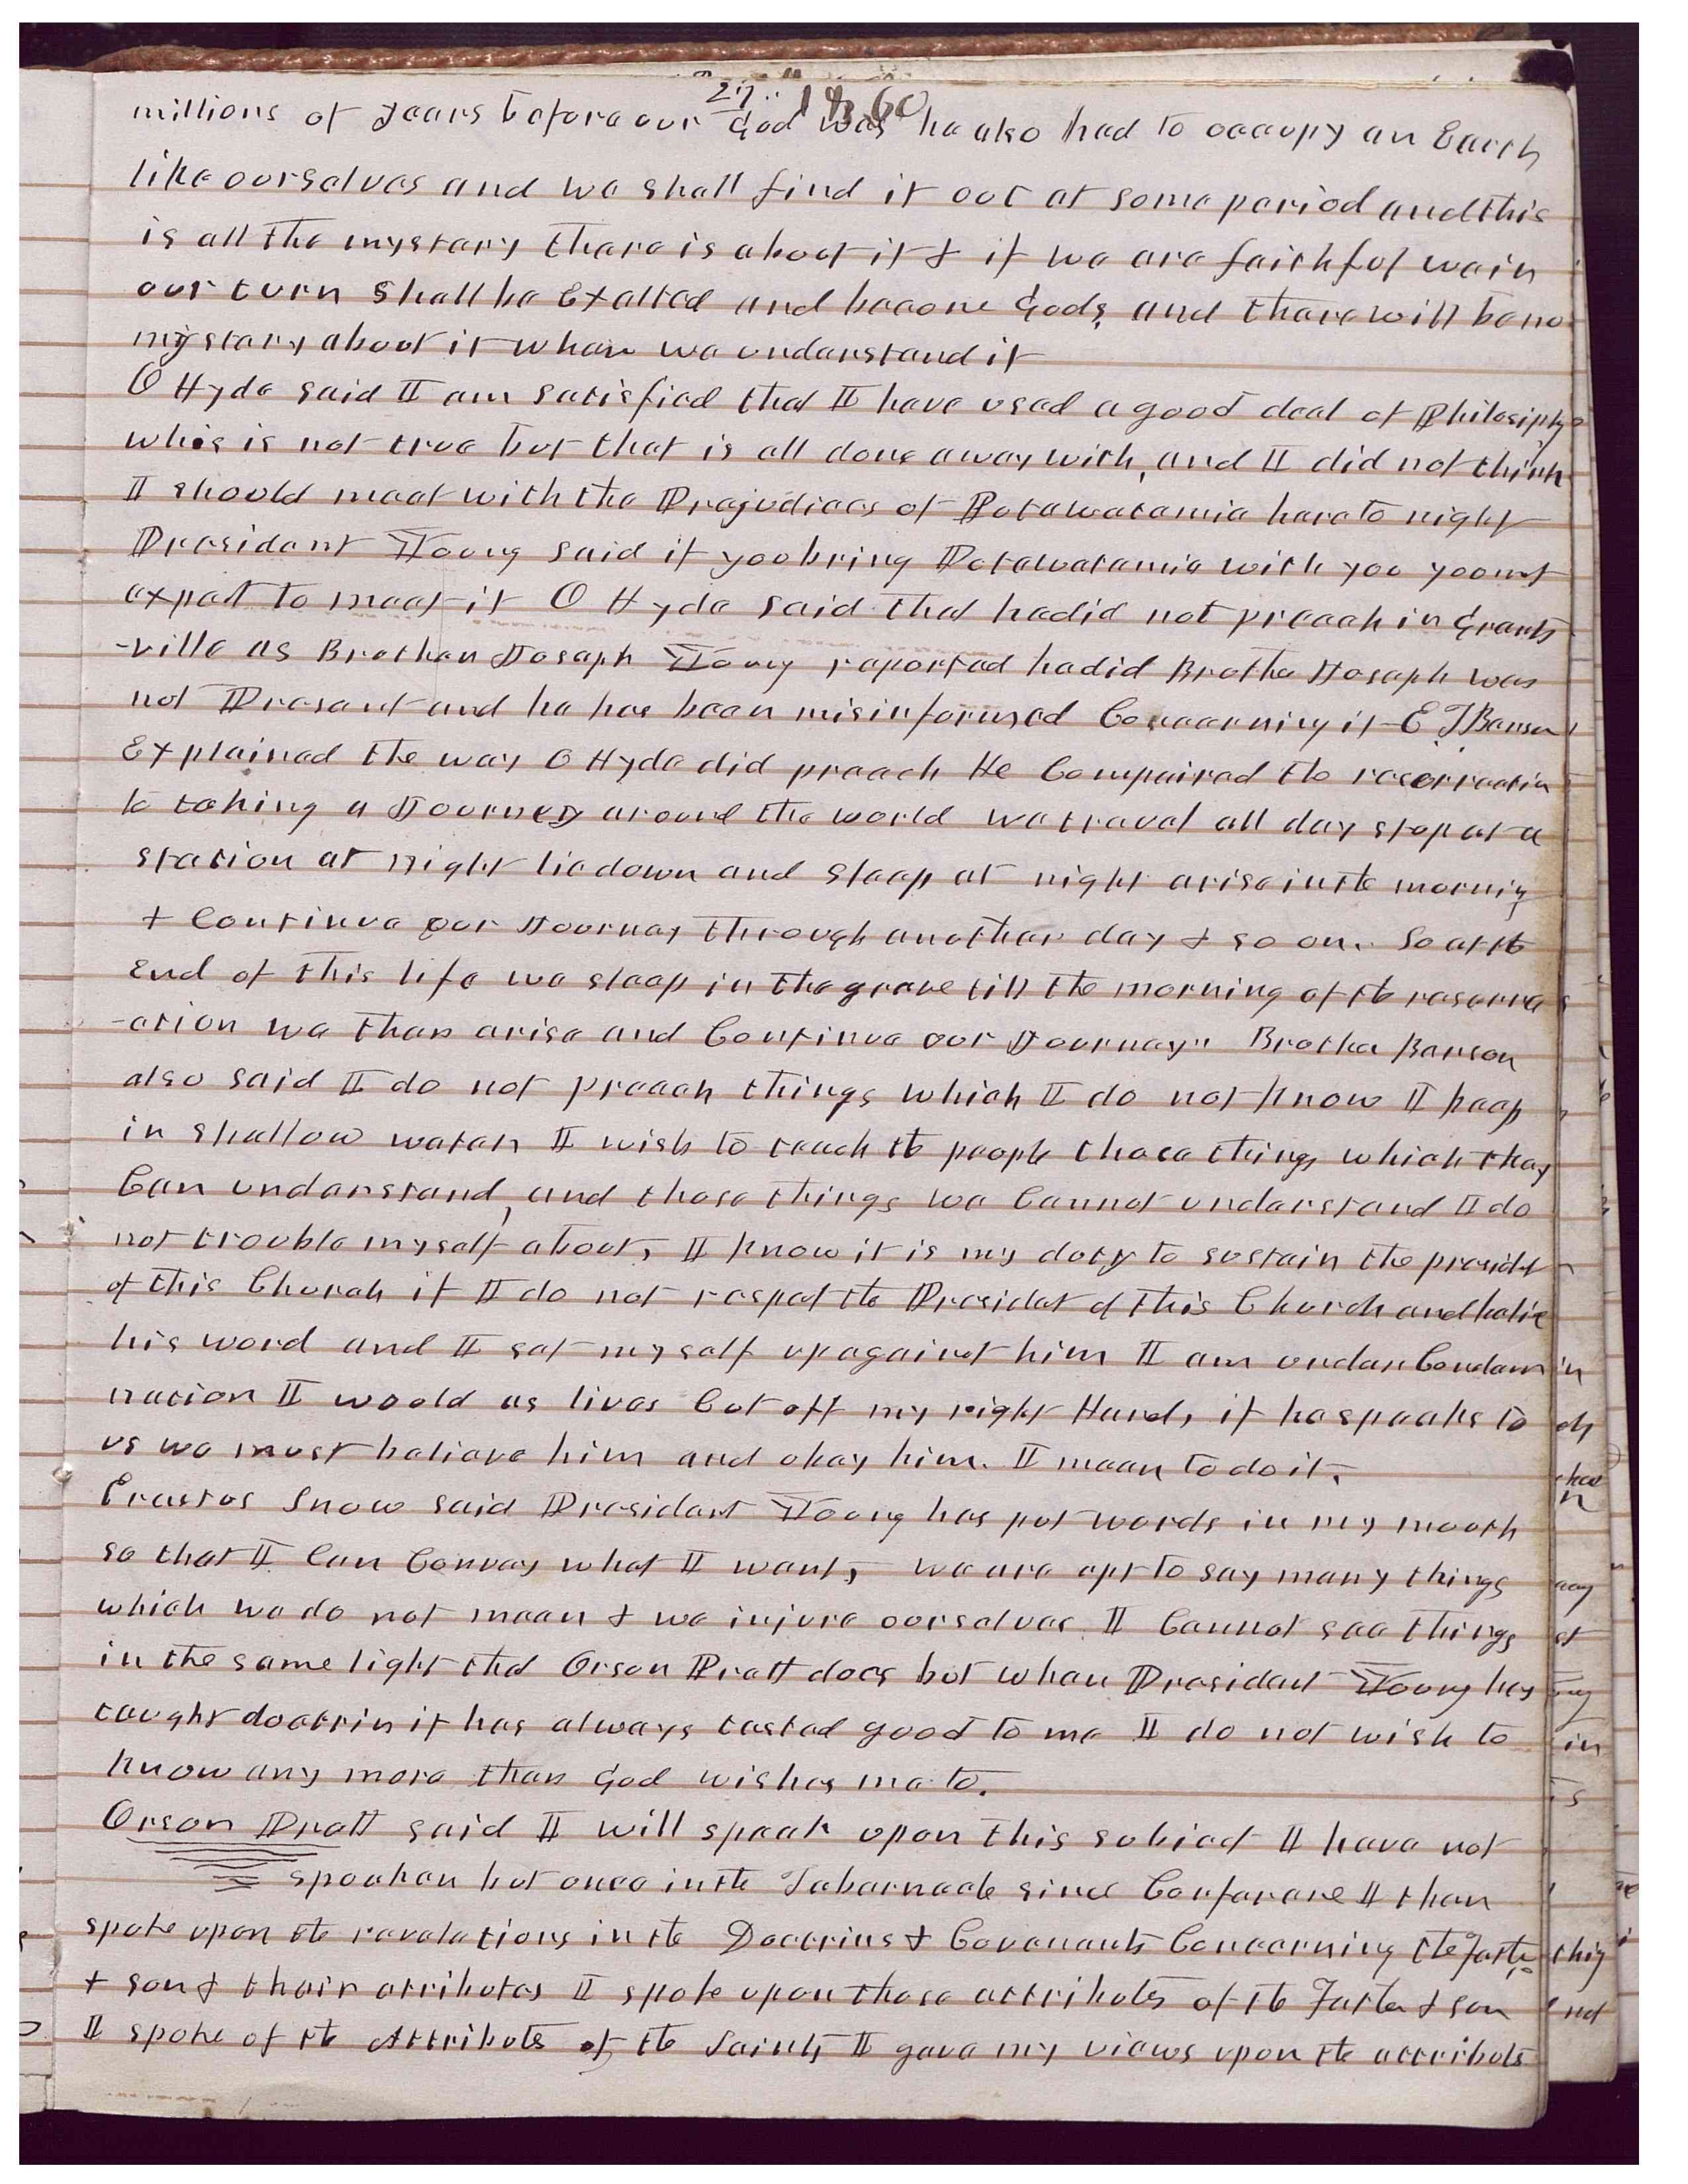 27 1860
millions of years before our God was he also had to occupy an Earth
like ourselves and we shall find it out at some period and this
is all the mystery there is about it & if we are faithful we in
our turn shall be Exalted and become Gods, and there will be no
mystery about it when we understand it
O Hyde said I am satisfied that I have used a good deal of Philosiphy
whis is not true but that is all done away with, and I did not think
I should meet with the Prejudices of Potawatamia here to night
President Young said if you bring Potawatamia with you you mst
expect to meet it O Hyde said that he did not preach in Grants
-ville as Brother Joseph Young reported he did Brother Joseph was
not Present and he has been misinformed Concerning it E T Benson
Explained the way O Hyde did preach He Compaired the resurrectin
to taking a Journey around the world we travel all day stop at a
station at night lie down and sleep at night arise in the mornig
& Continue our Journey through another day & so on. So at the
End of this life we sleep in the grave till the morning of the resurre
-ction we then arise and Continue our Journey" Brother Benson
also said I do not preach things which I do not know I keep
in shallow water I wish to teach the people those things which they
Can understand, and those things we Cannot understand I do
not trouble myself about, I know it is my duty to sustain the presidt
of this Church if I do not respect the Presidet of this Church and belie
his word and I set myself up against him I am under Condem
nation I would as lives Cut off my right Hand, if he speaks to
us we must believe him and obey him. I mean to do it.
Erastus Snow said President Young has put words in my mouth
so that I Can Convey what I want, we are apt to say many things
which we do not mean & we injure ourselves I Cannot see things
in the same light that Orson Pratt does but when President Young has
taught doctrin it has always tasted good to me I do not wish to
know any more than God wishes me to.
Orson Pratt said I will speak upon this subject I have not
spoken but once in the Tabernacle since Conference I then
spoke upon the revelations in the Doctrins & Covenants Concerning the Father
& son & their attributes I spoke upon those attributes of the Father & son
I spoke of the Attributes of the Saints I gave my views upon the attributs